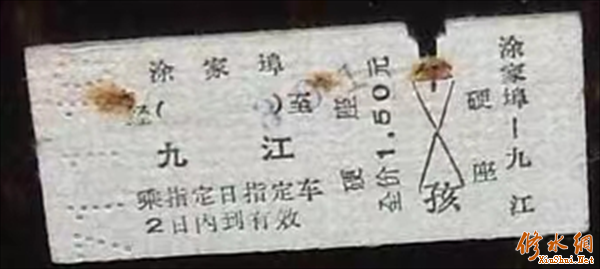 涂家埠
经( )至
九江
乘指定日指定车
2日内到有效
硬座
全价1.50元
孩
涂家埠—九江
硬座
修水網
XiuShui.Net